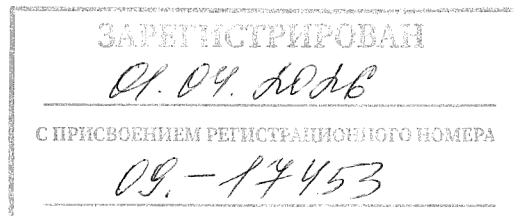 ЗАРЕГИСТРИРОВАН
01.04.2026
С ПРИСВОЕНИЕМ РЕГИСТРАЦИОННОГО НОМЕРА
09.-17453